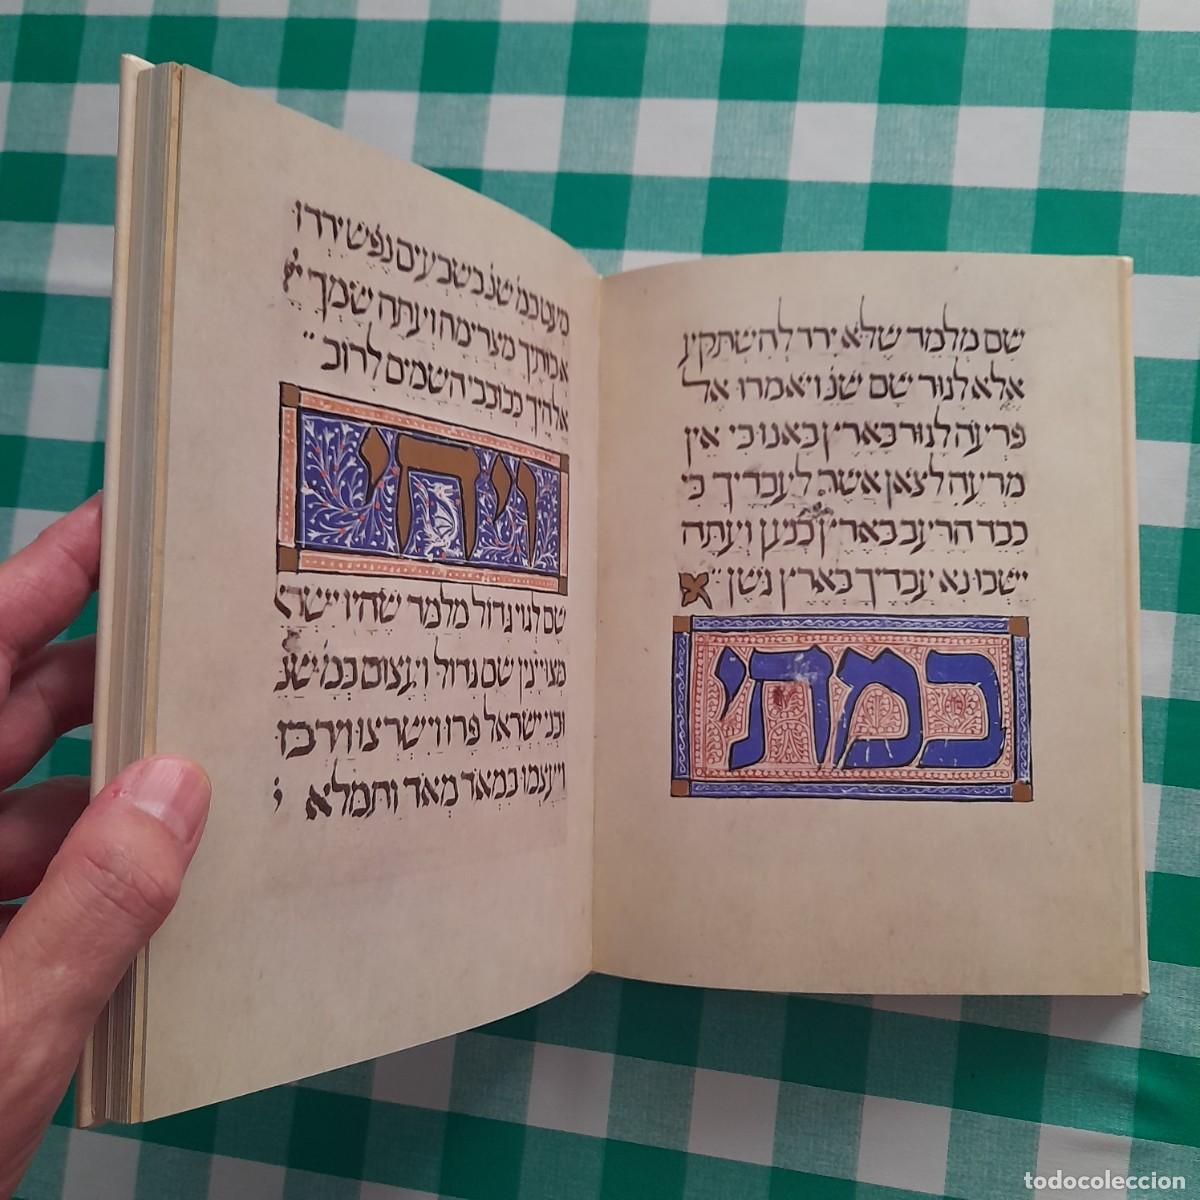 שם מלמד שלא ירד להשתקע
אלא לגור שם שנ ויאמרו אל
פרעה לגור בארץ באנו כי אין
מרעה לצאן אשר לעבדיך כי
כבד הרעב בארץ כנען ועתה
ישבו נא עבדיך בארץ גשן
במתי
מעט כמ שנ בשבעים נפש ירדו
אבותיך מצרימה ועתה שמך י
אלהיך ככוכבי השמים לרוב
ויהי
שם לגוי גדול מלמד שהיו ישר
מצויינין שם גדול ועצום כמ שנ
ובני ישראל פרו וישרצו וירבו
ויעצמו במאד מאד ותמלא י
todocoleccion